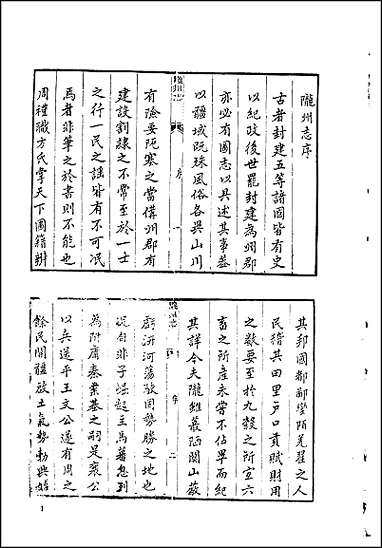 隴州志序
古者封建五等諸國皆有史
以紀政後世罷封建為州郡
亦必有國志以具述其事蓋
以疆域既殊風俗各異山川
有險要阨塞之當備州郡有
建設割隸之不常至於一士
之行一民之謠皆有不可泯
焉者非筆之於書則不能也
周禮職方氏掌天下圖籍辨
隴州志
序
一
其邦國都鄙蠻陌羌翟之人
民稽其田里戶口貢賦財用
之數要至於九穀之所宜六
畜之所產未嘗不佔畢而紀
其詳今夫隴雖叢陋關山蔽
虧汧河蕩潏固勢勝之地也
況自非子崛起主馬蕃息列
為附庸秦業基之嗣是襄公
以兵送平王文公遂有周之
餘民開疆啟土氣勢勃興始
隴州志
序
二
1